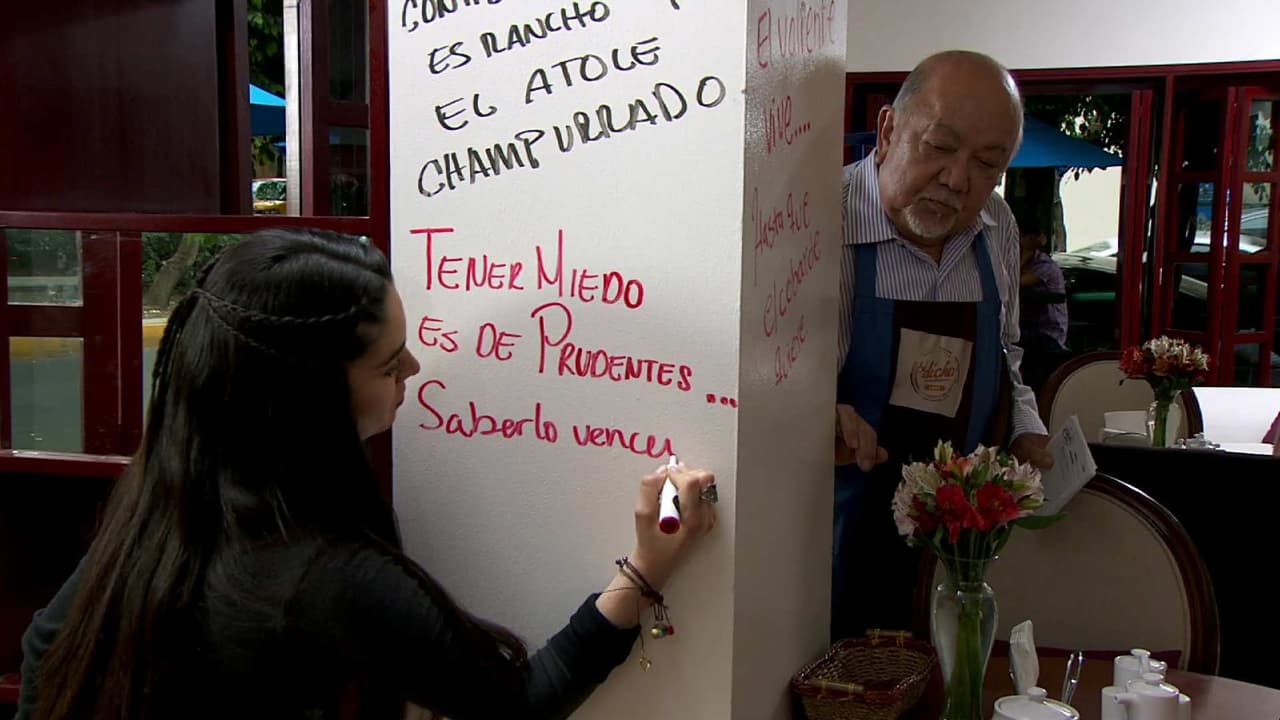 ES RANCHO
EL ATOLE
CHAMPURRADO
TENER MIEDO
ES DE PRUDENTES...
Saberlo vencer
El valiente
vive....
Hasta que
el cobarde
quiere